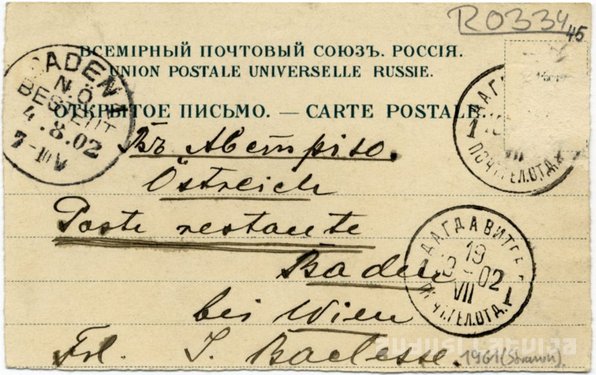 R0334
45
ВСЕМІРНЫЙ ПОЧТОВЫЙ СОЮЗЪ. РОССІЯ.
UNION POSTALE UNIVERSELLE RUSSIE.
ОТКРЫТОЕ ПИСЬМО. — CARTE POSTALE.
BADEN
N.Ö.
BESTELLT
4.8.02
7-10V
Въ Австрію.
Östreich
Poste restante
Baden
bei Wien
Frl. J.
ДАГДА ВИТЕБ
19
02
VII
ПОЧ.ТЕЛ.ОТД.
1
ДАГДА
VII
ПОЧ.ТЕЛ.ОТД.
1
zudusilatvija
1961